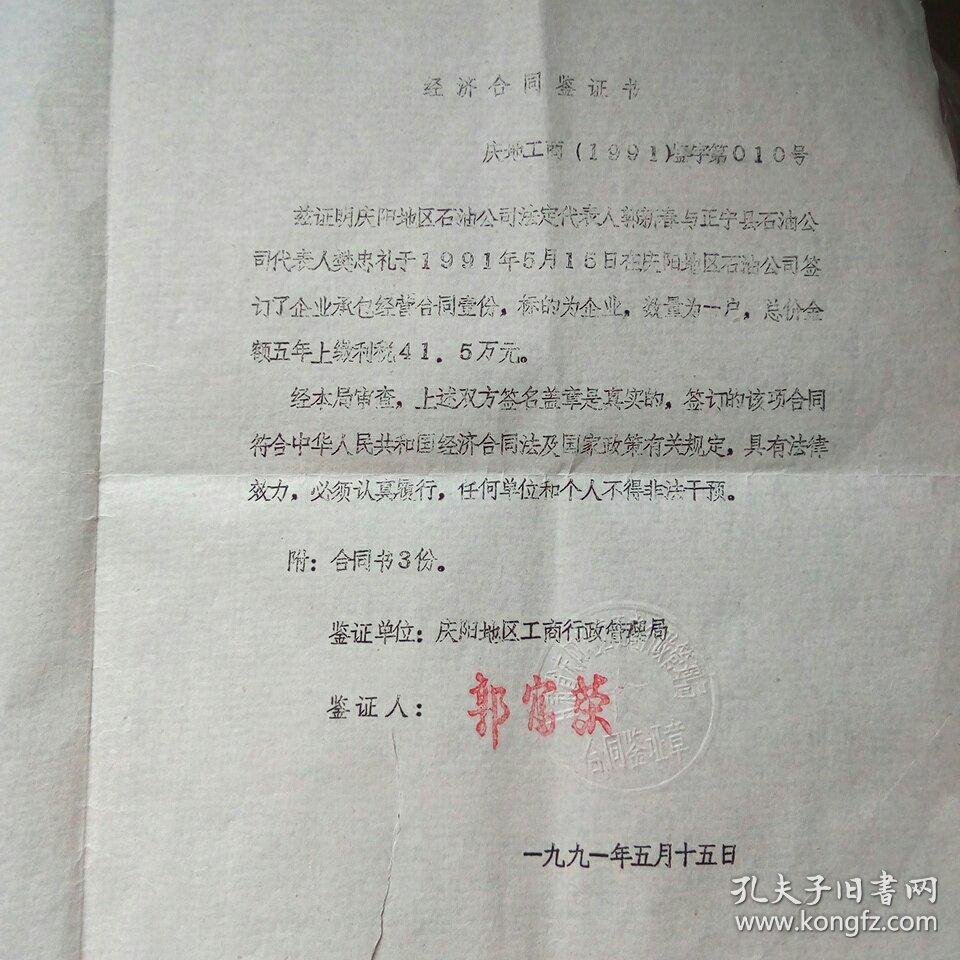 经济合同鉴证书
庆地工商(1991)鉴字第010号
兹证明庆阳地区石油公司法定代表人郭新春与正宁县石油公
司代表人樊忠礼于1991年5月15日在庆阳地区石油公司签
订了企业承包经营合同壹份，标的为企业，数量为一户，总价金
额五年上缴利税41.5万元。
经本局审查，上述双方签名盖章是真实的，签订的该项合同
符合中华人民共和国经济合同法及国家政策有关规定，具有法律
效力，必须认真履行，任何单位和个人不得非法干预。
附：合同书3份。
鉴证单位：庆阳地区工商行政管理局
鉴证人：郭富荣
合同鉴证章
一九九一年五月十五日
孔夫子旧书网
www.kongfz.com